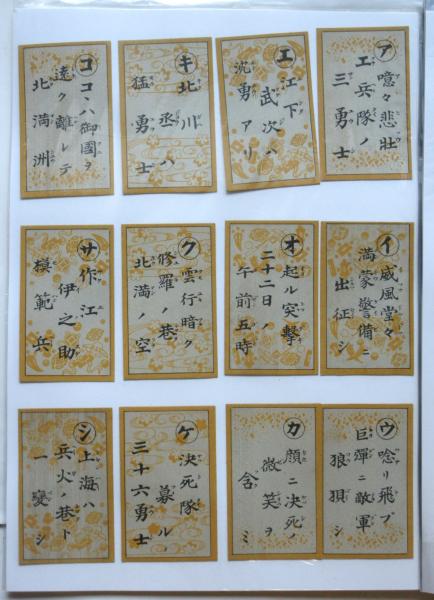 ア
噫々悲壮
工兵隊ノ
三勇士
イ
威風堂々
満蒙警備ニ
出征シ
ウ
唸リ飛ブ
巨彈ニ敵軍
狼狽シ
エ
江下
武次ハ
沈勇アリ
オ
起ル突撃
二十二日ノ
午前五時
カ
顔ニ決死ノ
微笑ヲ
含ミ
キ
北川
丞ハ
猛勇士
ク
雲行暗ク
修羅ノ巷
北満ノ空
ケ
決死隊
募ル
三十六勇士
コ
コヽハ御國ヲ
遠ク離レテ
北満洲
サ
作江
伊之助
模範兵
シ
上海ハ
兵火ノ巷ト
一変シ